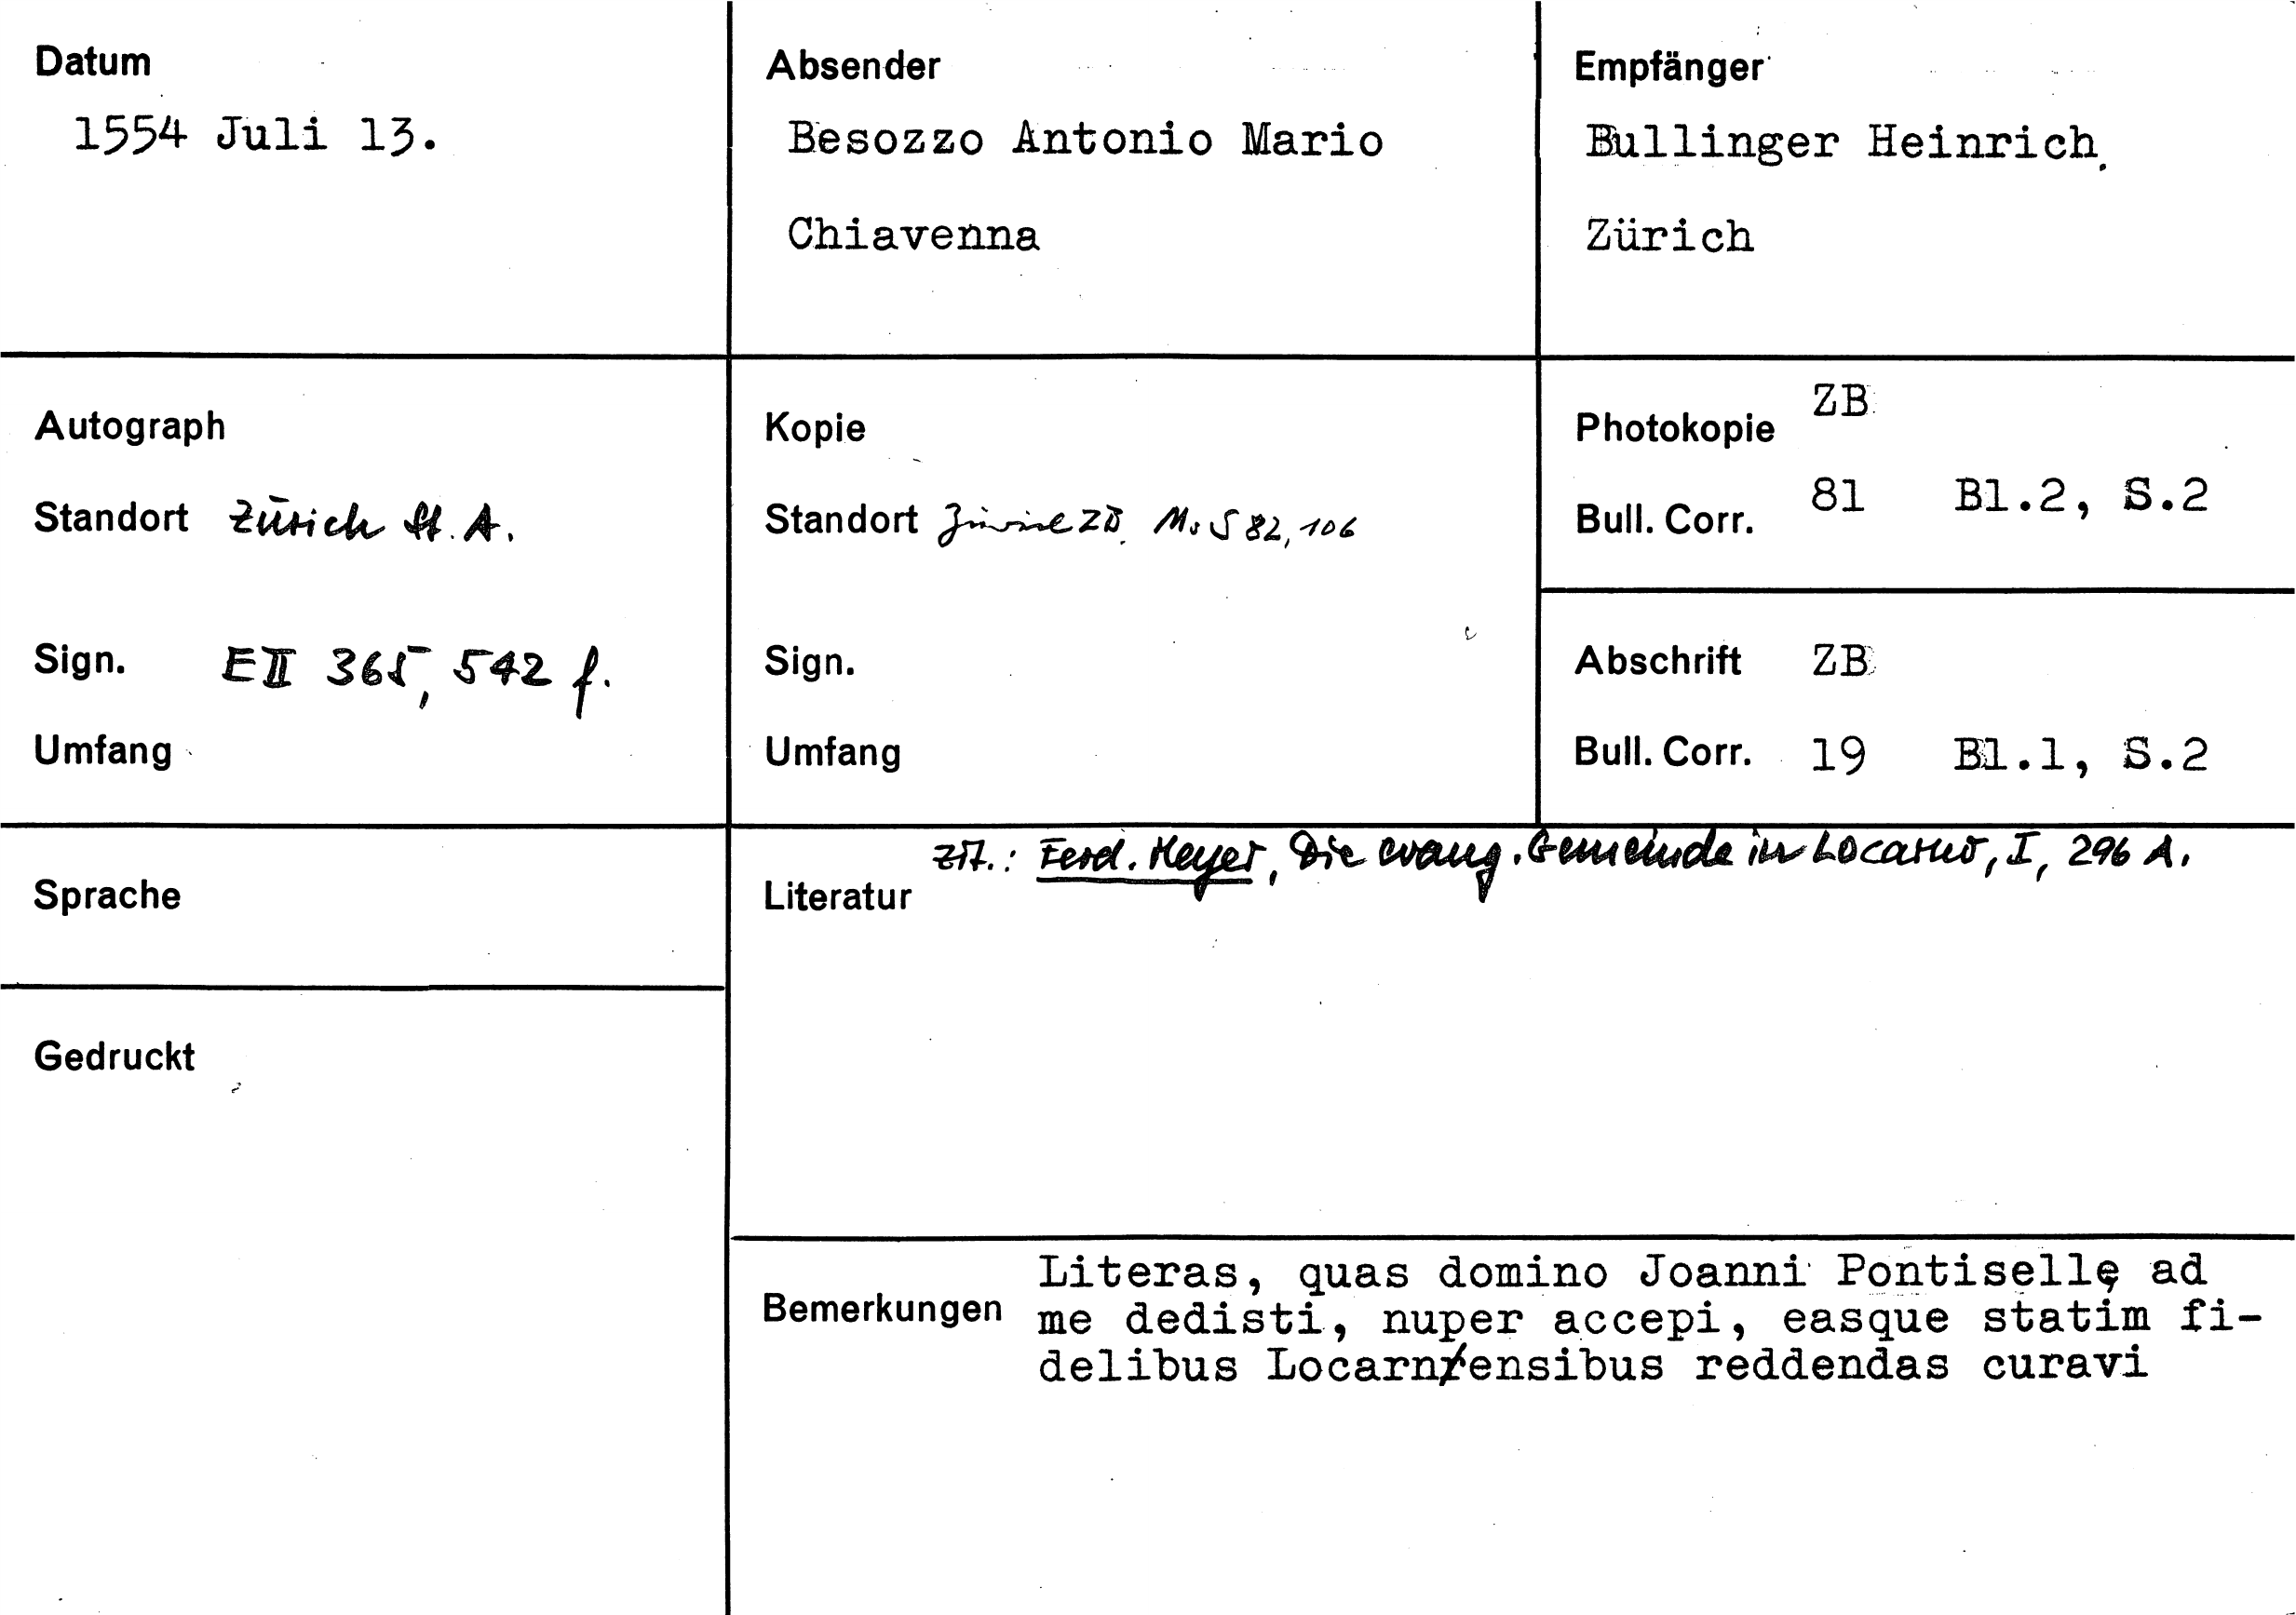 Datum
1554 Juli 13.
Absender
Besozzo Antonio Mario
Chiavenna
Empfänger
Bullinger Heinrich.
Zürich
Autograph
Standort Zürich St. A.
Sign. E II 365, 542 f.
Umfang
Kopie
Standort Zürich ZB. Ms S 82, 106
Sign.
Umfang
Photokopie ZB
Bull. Corr. 81 Bl.2, S.2
Abschrift ZB
Bull. Corr. 19 Bl.1, S.2
Sprache
Gedruckt
Literatur zit.: Ferd. Meyer, Die evang. Gemeinde in Locarno, I, 296 A.
Bemerkungen Literas, quas domino Joanni Pontisellę ad
me dedisti, nuper accepi, easque statim fi-
delibus Locarnensibus reddendas curavi